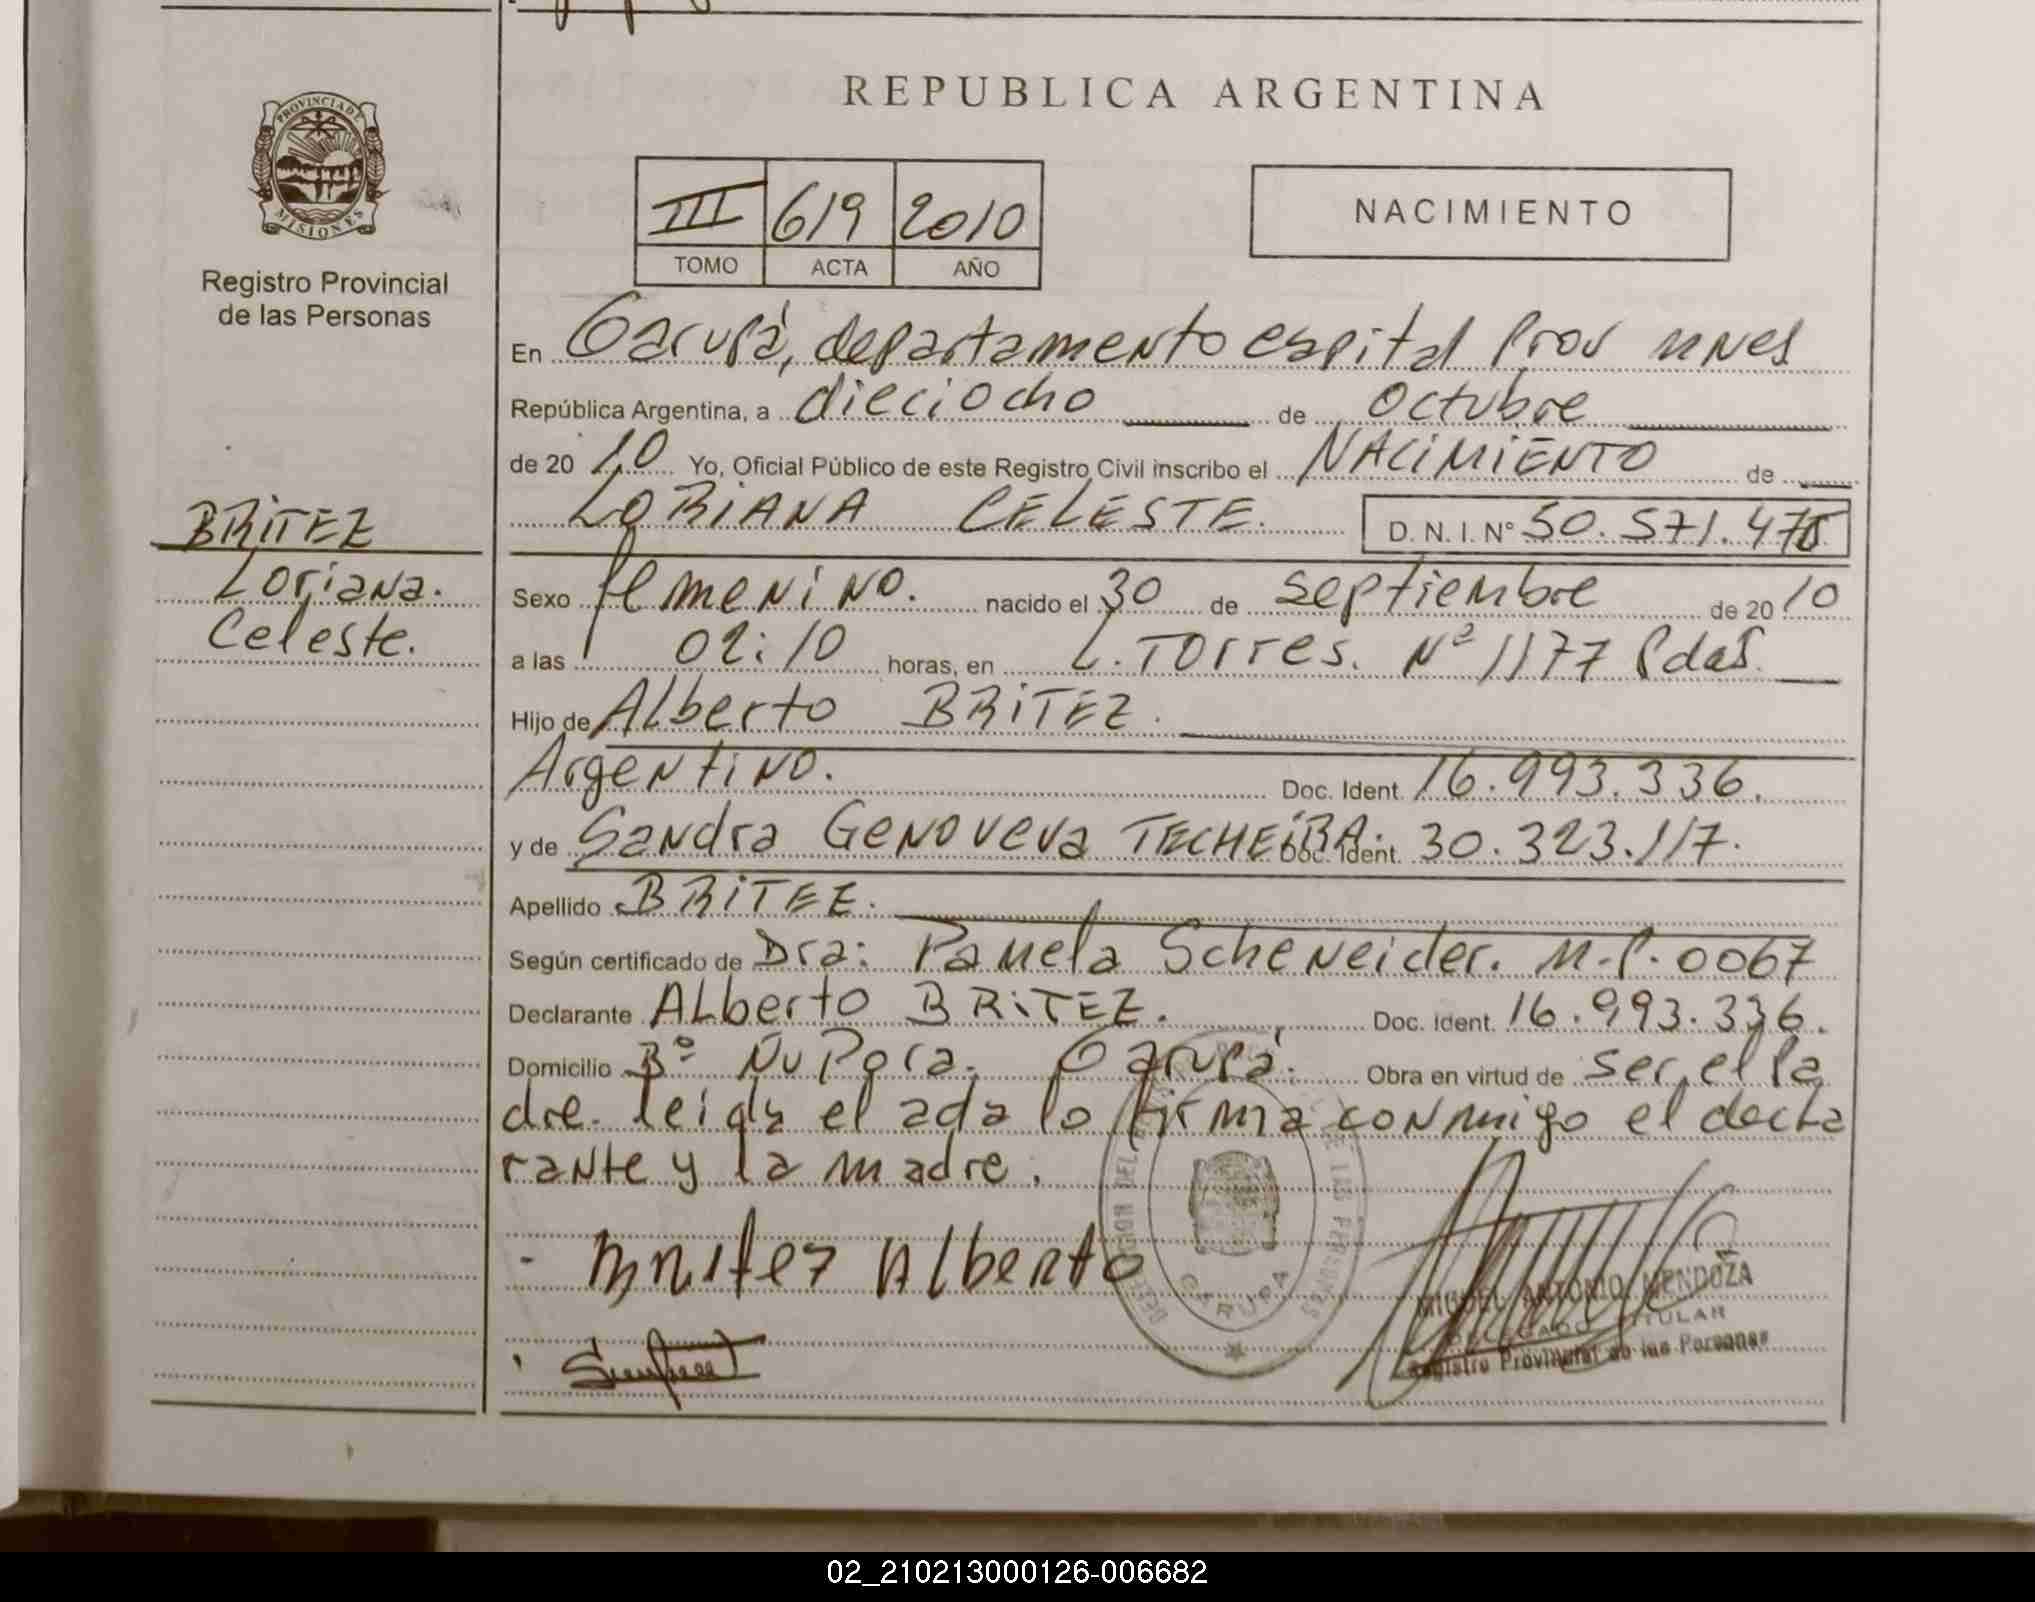 REPUBLICA ARGENTINA
PROVINCIA DE
MISIONES
Registro Provincial
de las Personas
III 619 2010
TOMO ACTA AÑO
NACIMIENTO
En Garupá, departamento capital Prov Mnes
República Argentina, a dieciocho de Octubre
de 2010 Yo, Oficial Público de este Registro Civil inscribo el NACIMIENTO de
LORIANA CELESTE. D. N. I. Nº 50.571.
BRITEZ
Loriana.
Celeste.
Sexo femenino. nacido el 30 de septiembre de 2010
a las 02:10 horas, en L. Torres. Nº 1177 Pdas.
Hijo de Alberto BRITEZ.
Argentino. Doc. Ident. 16.993.336.
y de Sandra Genoveva TECHEIRA. Doc. Ident. 30.323.117.
Apellido BRITEZ.
Según certificado de Dra: Pamela Scheneider. M.P. 0067
Declarante Alberto BRITEZ. Doc. Ident. 16.993.336.
Domicilio Bº Ñu Pora. Garupá. Obra en virtud de ser el pa
dre. leida el acta lo firma conmigo el decla
rante y la madre.
Britez Alberto
GARUPA
MIGUEL ANTONIO MENDOZA
DELEGADO TITULAR
Registro Provincial de las Personas
02_210213000126-006682